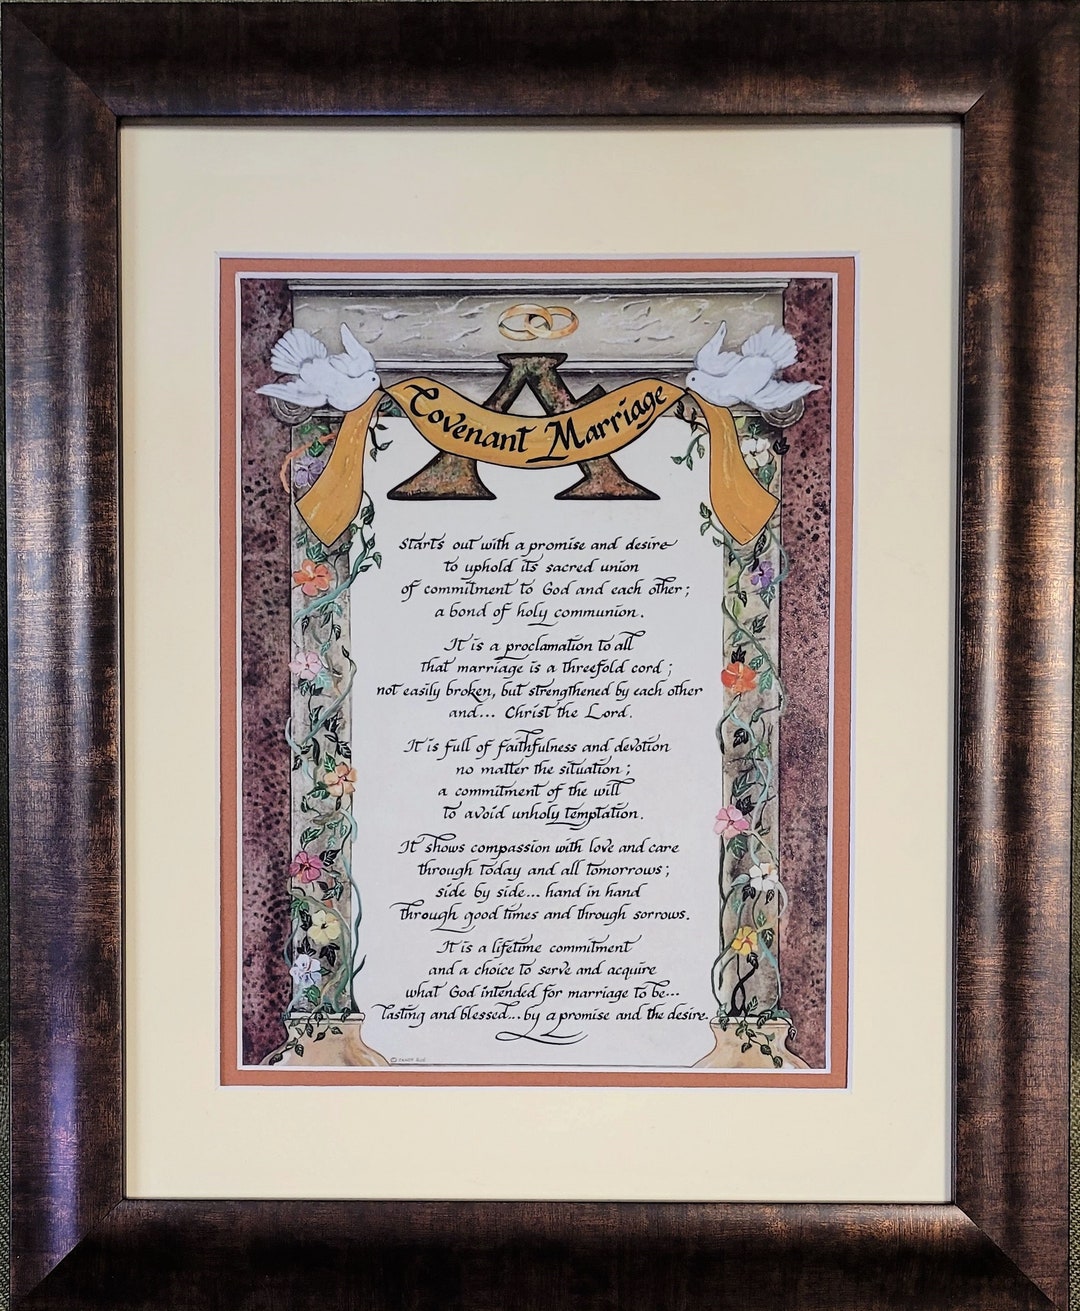 A
Covenant Marriage
Starts out with a promise and desire
to uphold its sacred union
of commitment to God and each other;
a bond of holy communion.
It is a proclamation to all
that marriage is a threefold cord;
not easily broken, but strengthened by each other
and... Christ the Lord.
It is full of faithfulness and devotion
no matter the situation;
a commitment of the will
to avoid unholy temptation.
It shows compassion with love and care
through today and all tomorrows;
side by side... hand in hand
through good times and through sorrows.
It is a lifetime commitment
and a choice to serve and acquire
what God intended for marriage to be...
lasting and blessed... by a promise and the desire.
©